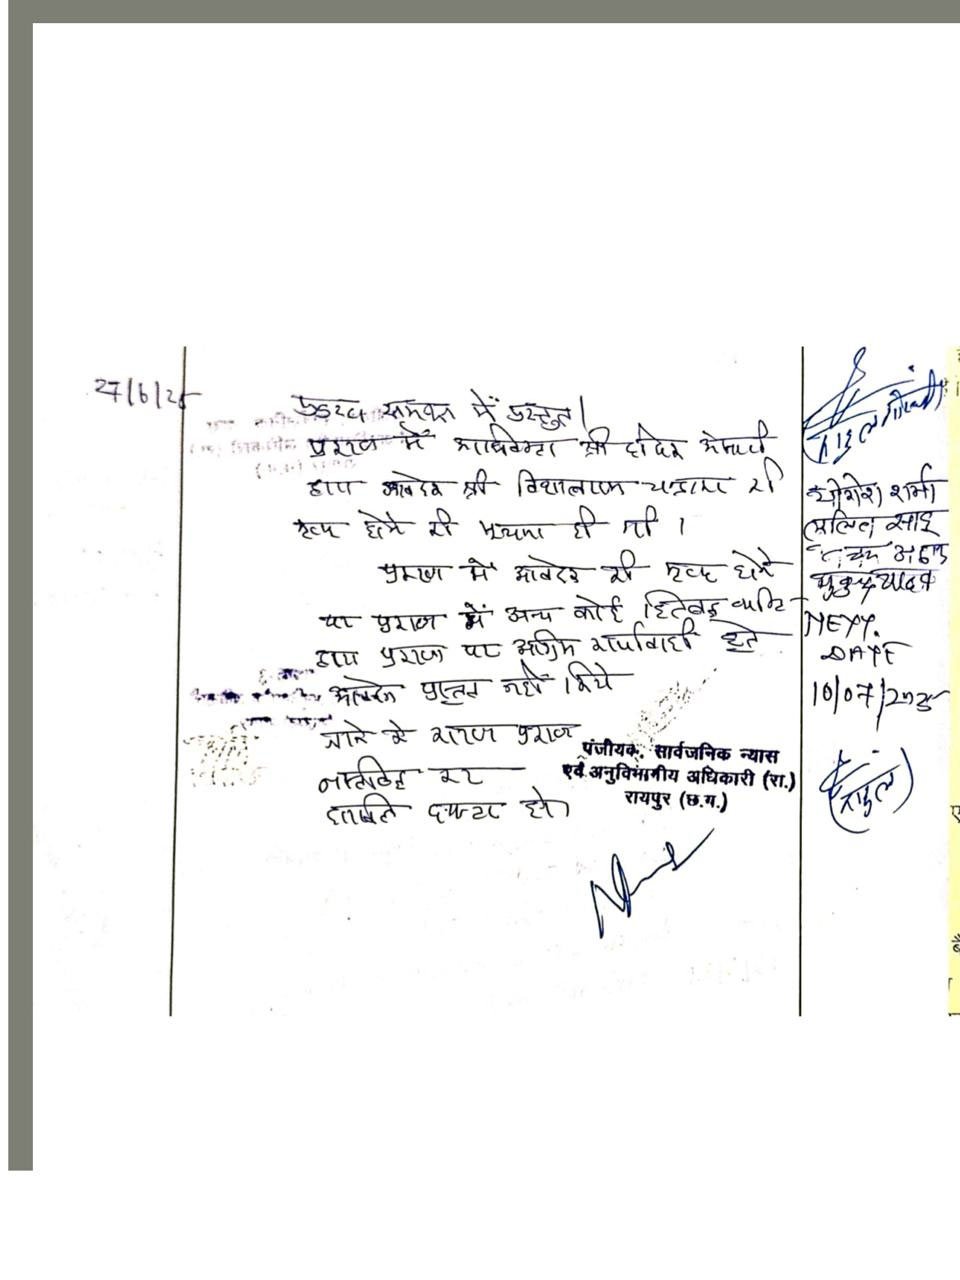 27/6/25
प्रकरण समक्ष में प्रस्तुत।
प्रकरण में अधिवक्ता श्री
द्वारा आवेदक श्री की
मृत्यु होने की सूचना दी गयी।
प्रकरण में आवेदक की मृत्यु होने
पर प्रकरण में अन्य कोई हितबद्ध व्यक्ति
द्वारा प्रकरण पर अग्रिम कार्यवाही हेतु
आवेदन प्रस्तुत नहीं किये
जाने के कारण प्रकरण
नस्तीबद्ध कर
दाखिल दफ्तर हो।
पंजीयक, सार्वजनिक न्यास
एवं अनुविभागीय अधिकारी (रा.)
रायपुर (छ.ग.)
योगेश शर्मा
ललित साहू
मुकुन्द यादव
NEXT
DATE
10/07/2025
(राहुल)